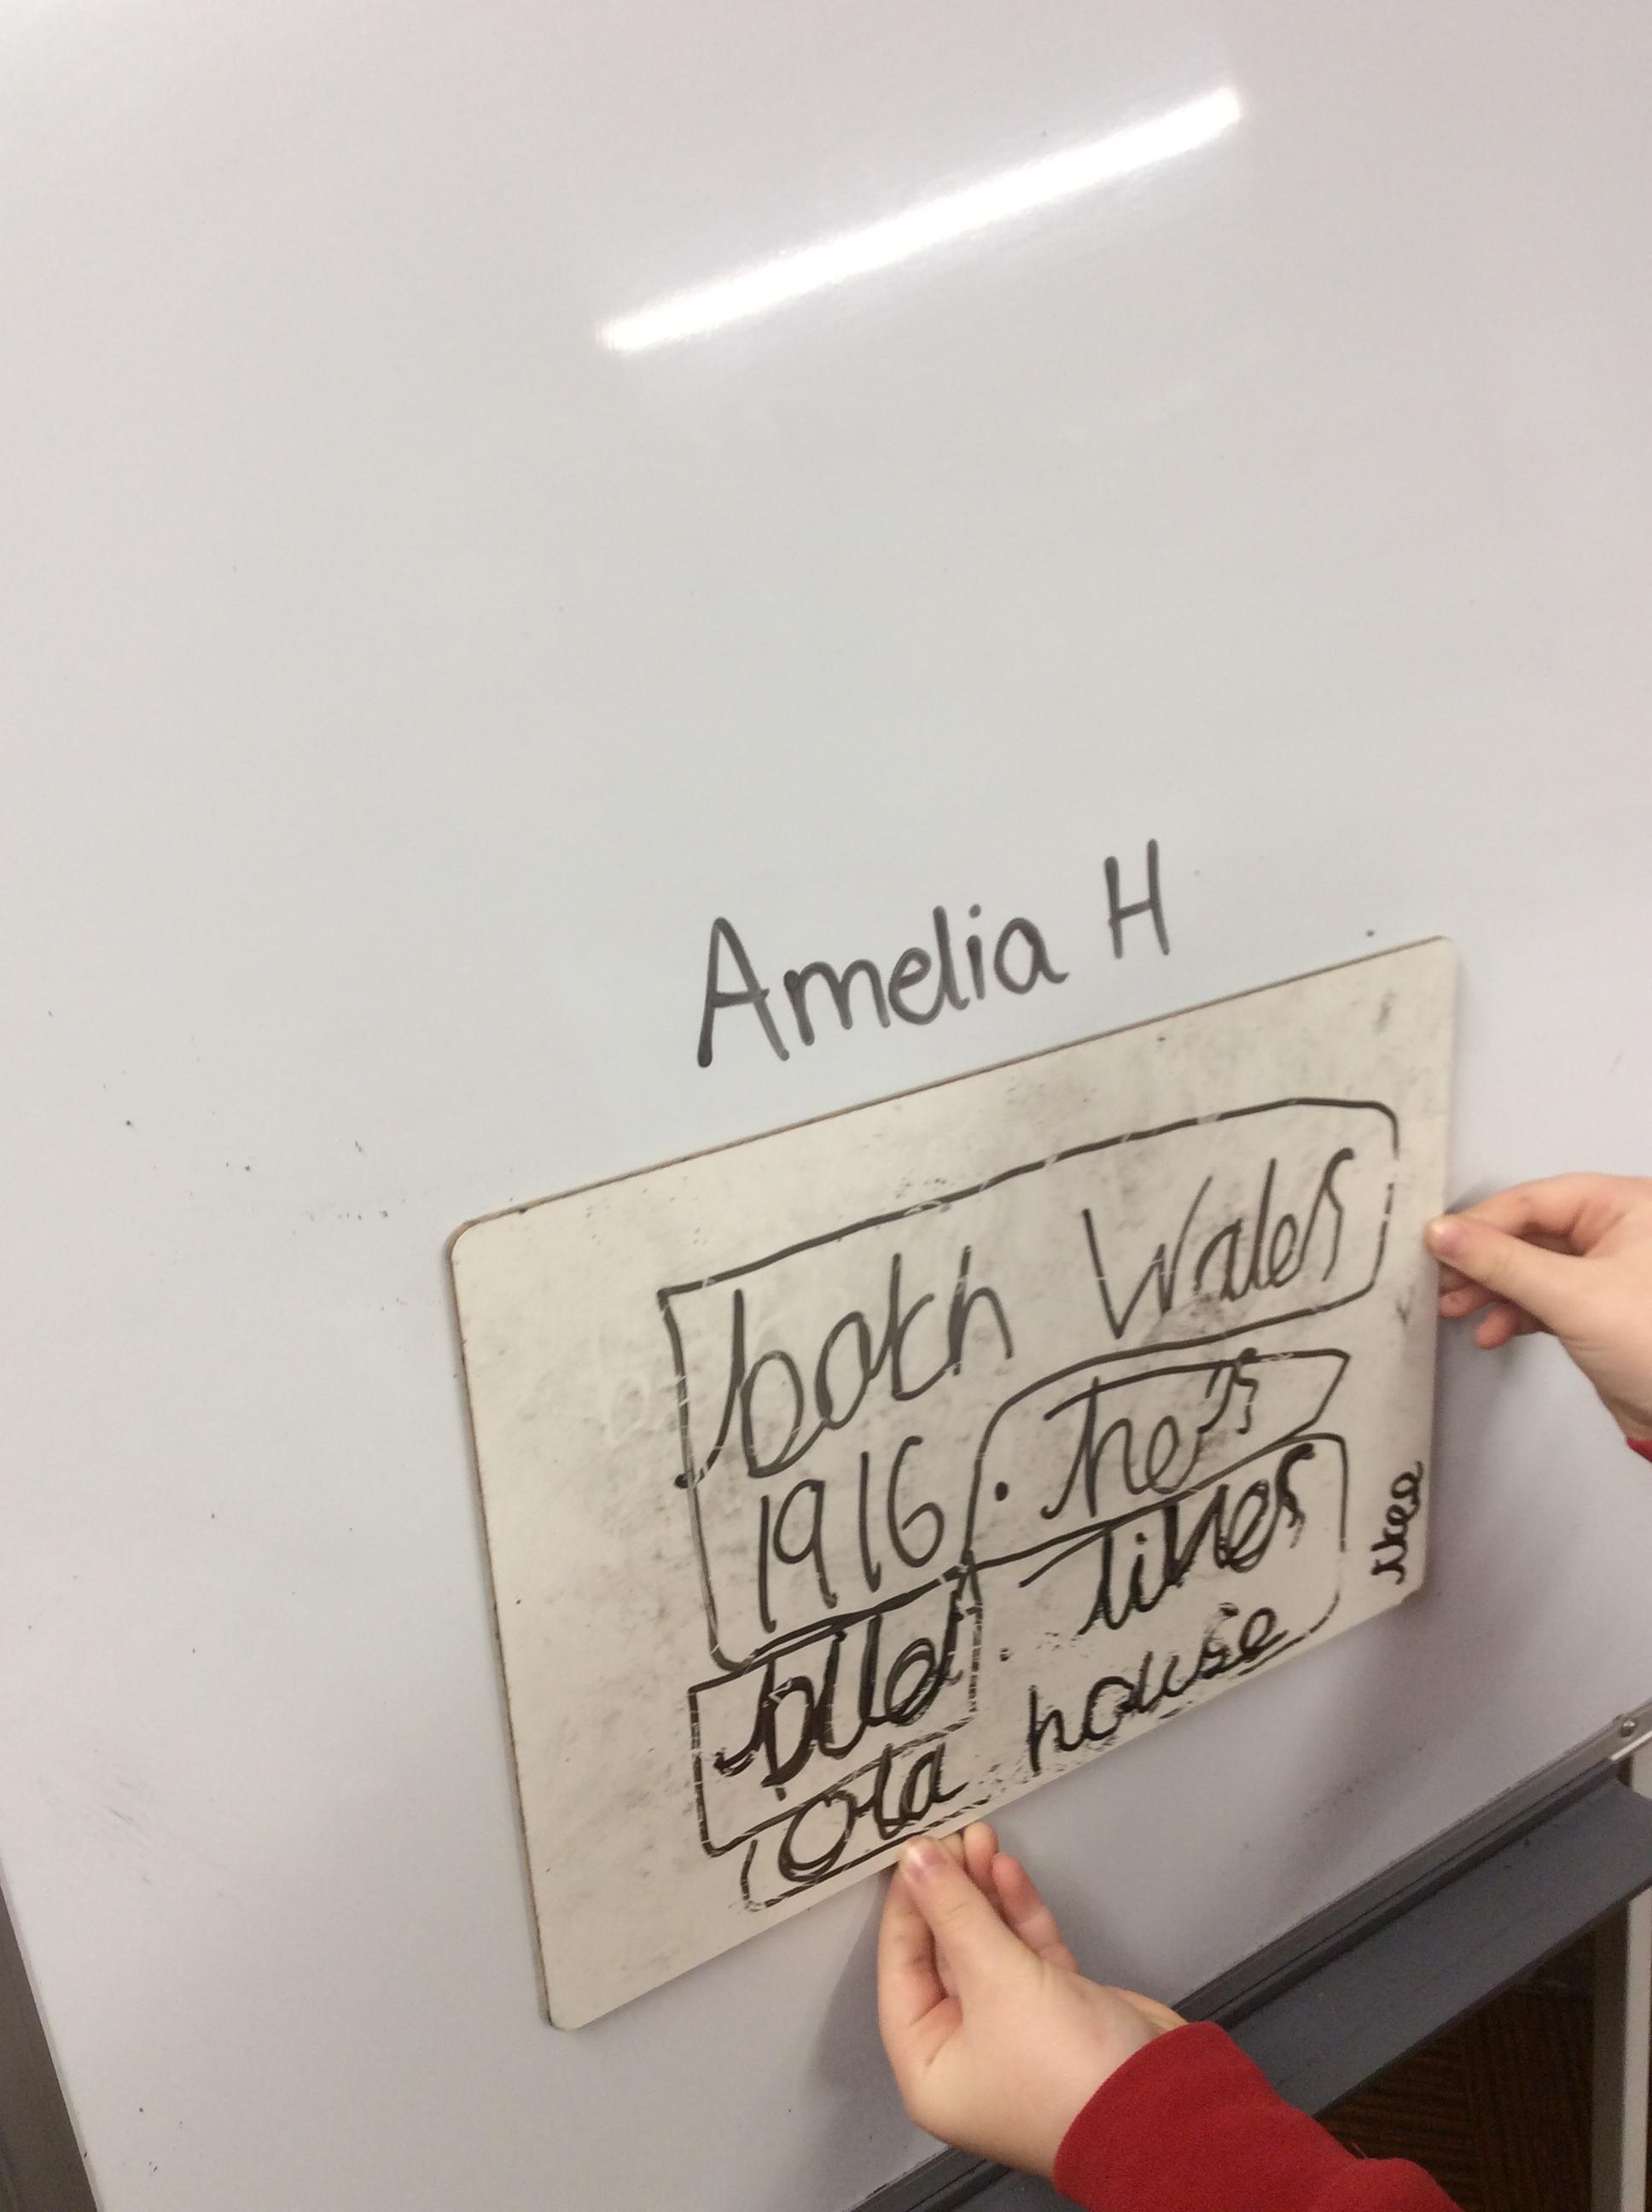 Amelia H
both Wales
1916 . he's
. likes
old house
ikea